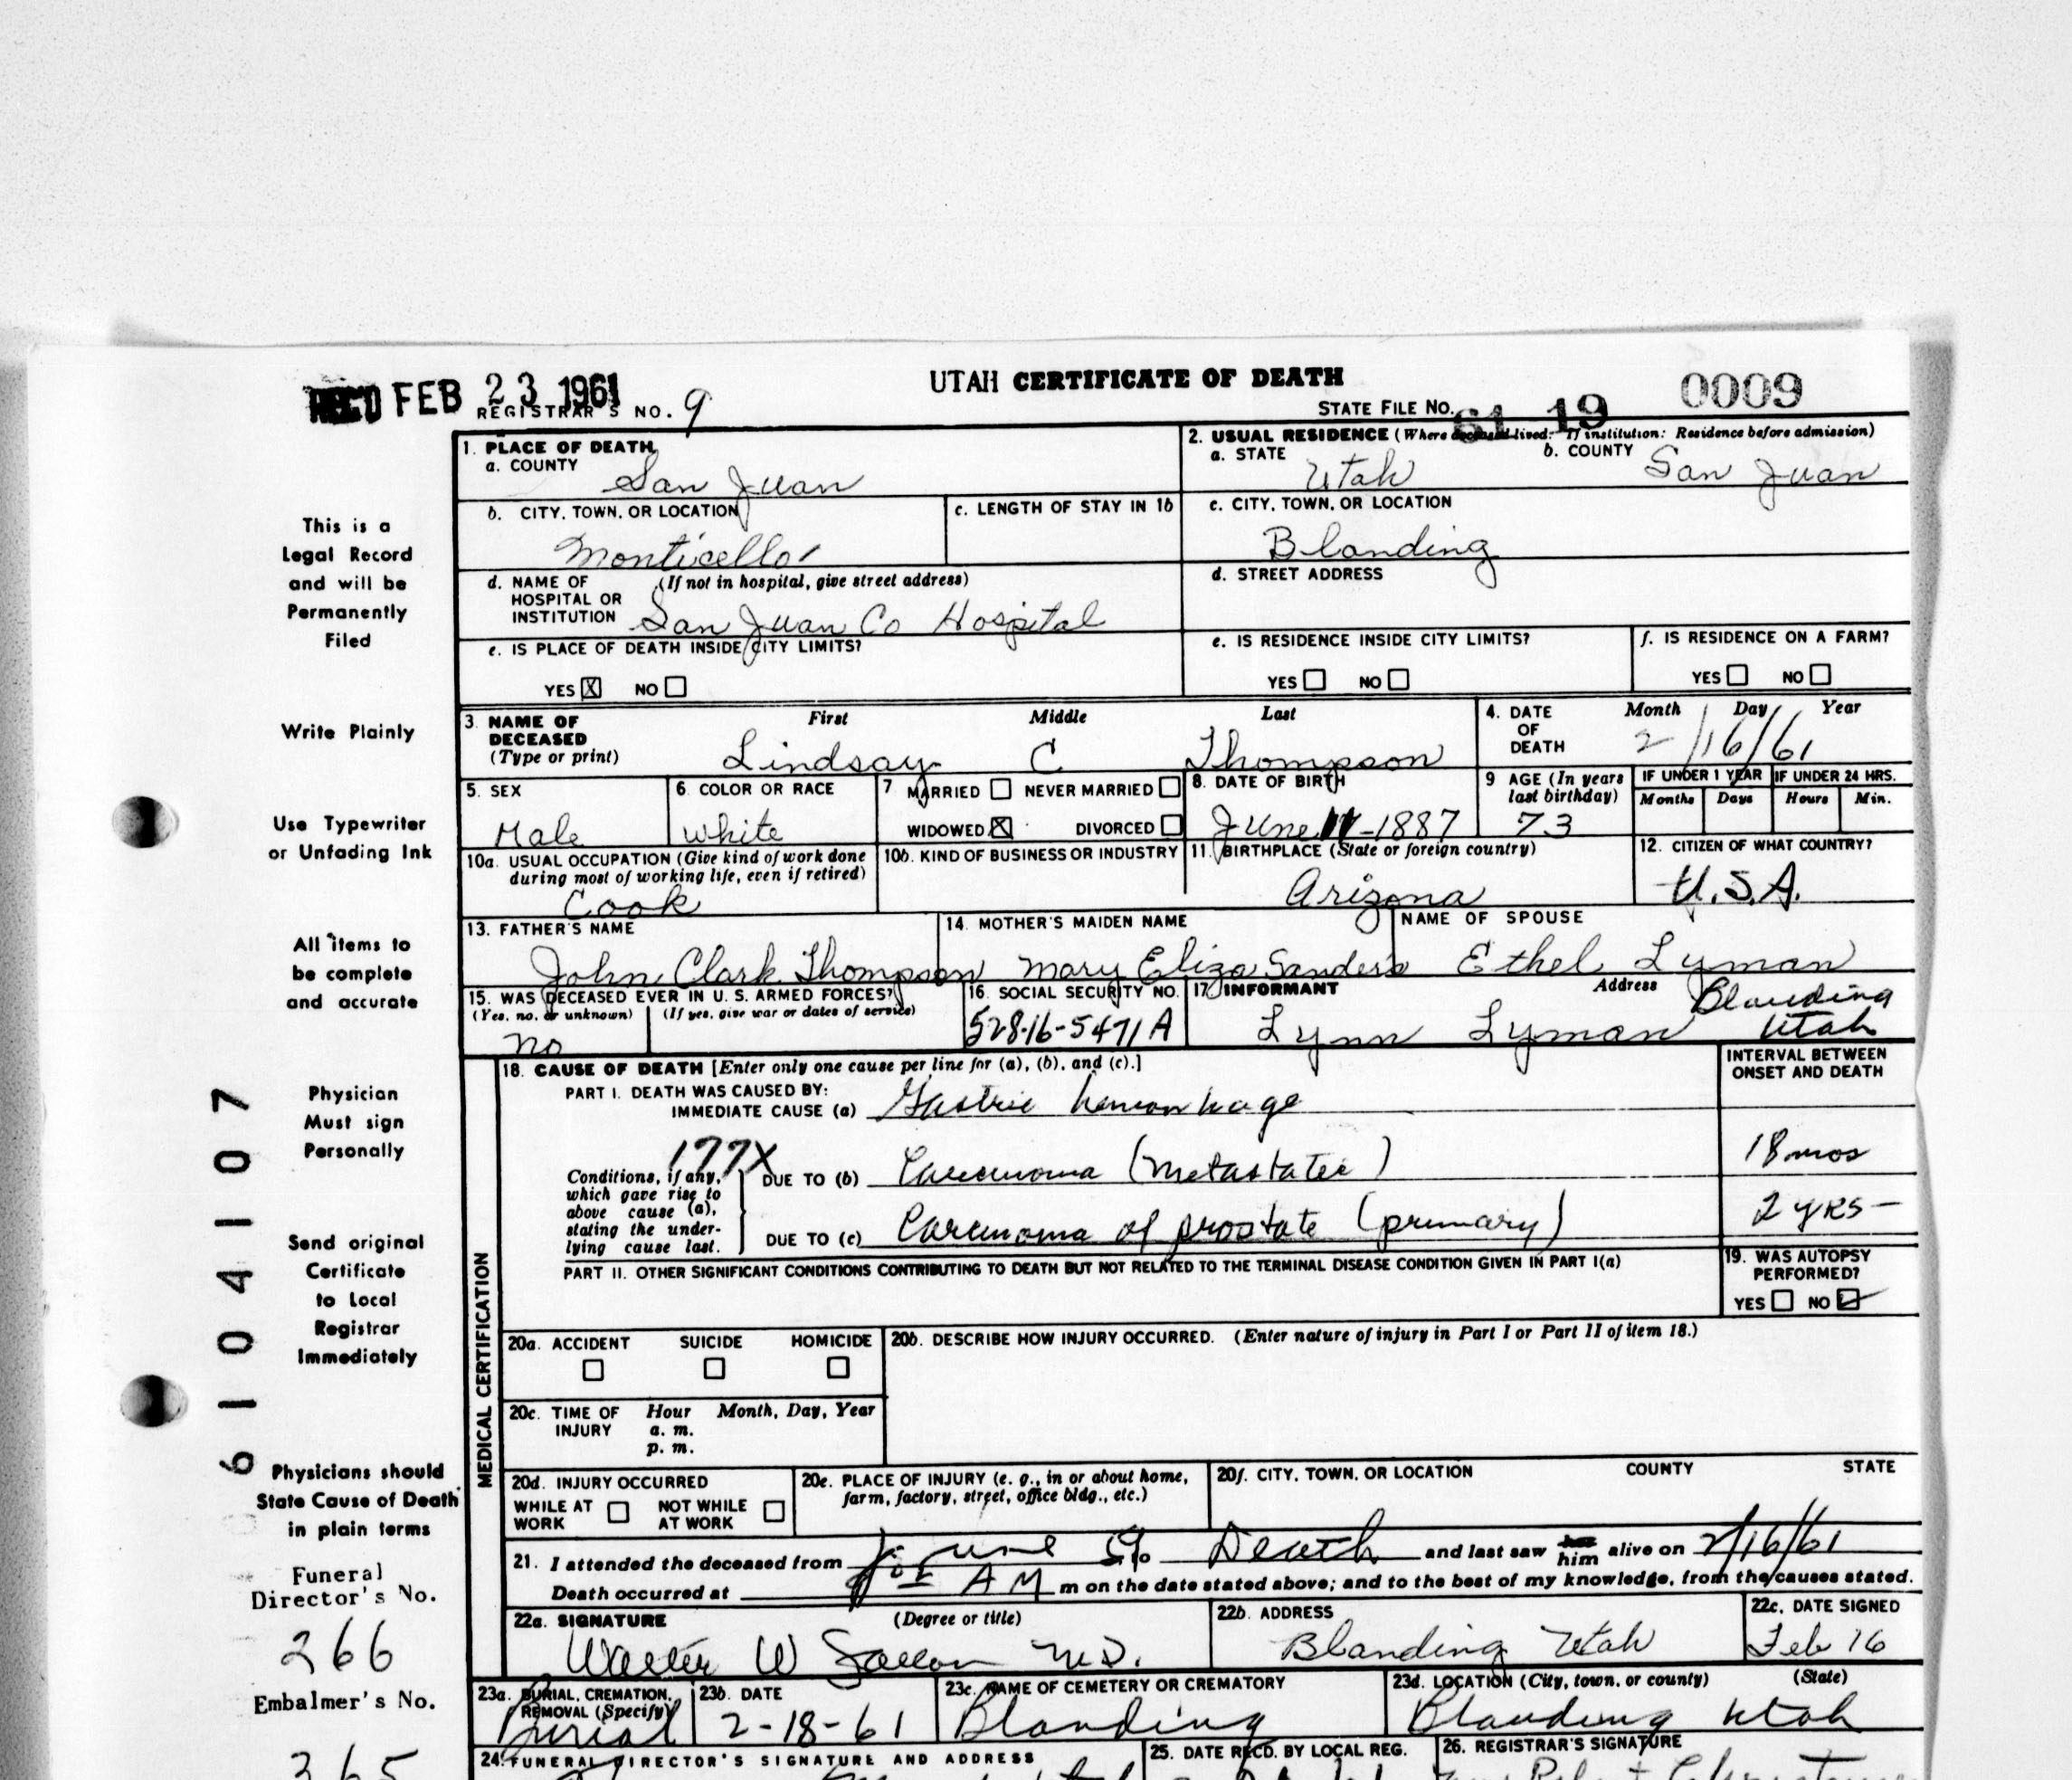 REC'D FEB 23 1961
REGISTRAR'S NO. 9
UTAH CERTIFICATE OF DEATH
STATE FILE NO. 61 19 0009
1. PLACE OF DEATH
a. COUNTY San Juan
2. USUAL RESIDENCE (Where deceased lived. If institution: Residence before admission)
a. STATE Utah b. COUNTY San Juan
b. CITY, TOWN, OR LOCATION Monticello
c. LENGTH OF STAY IN 1b
c. CITY, TOWN, OR LOCATION Blanding
d. NAME OF HOSPITAL OR INSTITUTION (If not in hospital, give street address) San Juan Co Hospital
d. STREET ADDRESS
e. IS PLACE OF DEATH INSIDE CITY LIMITS?
YES X NO
e. IS RESIDENCE INSIDE CITY LIMITS?
YES NO
f. IS RESIDENCE ON A FARM?
YES NO
3. NAME OF DECEASED (Type or print)
First Middle Last
Lindsay C Thompson
4. DATE OF DEATH Month Day Year
2/16/61
5. SEX Male
6. COLOR OR RACE white
7 MARRIED NEVER MARRIED
WIDOWED X DIVORCED
8. DATE OF BIRTH June -1887
9 AGE (In years last birthday) 73
IF UNDER 1 YEAR Months Days
IF UNDER 24 HRS. Hours Min.
10a. USUAL OCCUPATION (Give kind of work done during most of working life, even if retired) Cook
10b. KIND OF BUSINESS OR INDUSTRY
11. BIRTHPLACE (State or foreign country) Arizona
12. CITIZEN OF WHAT COUNTRY? U.S.A.
13. FATHER'S NAME John Clark Thompson
14. MOTHER'S MAIDEN NAME Mary Eliza Sanders
NAME OF SPOUSE Ethel Lyman
15. WAS DECEASED EVER IN U. S. ARMED FORCES?
(Yes, no, or unknown) (If yes, give war or dates of service)
no
16. SOCIAL SECURITY NO. 528-16-5471A
17. INFORMANT Address
Lynn Lyman Blanding Utah
MEDICAL CERTIFICATION
18. CAUSE OF DEATH [Enter only one cause per line for (a), (b), and (c).]
INTERVAL BETWEEN ONSET AND DEATH
PART I. DEATH WAS CAUSED BY:
IMMEDIATE CAUSE (a) Gastric hemorrhage
177X
Conditions, if any, which gave rise to above cause (a), stating the underlying cause last.
DUE TO (b) Carcinoma (metastatic) 18 mos
DUE TO (c) Carcinoma of prostate (primary) 2 yrs-
PART II. OTHER SIGNIFICANT CONDITIONS CONTRIBUTING TO DEATH BUT NOT RELATED TO THE TERMINAL DISEASE CONDITION GIVEN IN PART I(a)
19. WAS AUTOPSY PERFORMED?
YES NO
20a. ACCIDENT SUICIDE HOMICIDE
20b. DESCRIBE HOW INJURY OCCURRED. (Enter nature of injury in Part I or Part II of item 18.)
20c. TIME OF INJURY Hour Month, Day, Year
a. m.
p. m.
20d. INJURY OCCURRED
WHILE AT WORK NOT WHILE AT WORK
20e. PLACE OF INJURY (e. g., in or about home, farm, factory, street, office bldg., etc.)
20f. CITY, TOWN, OR LOCATION COUNTY STATE
21. I attended the deceased from June 59 to Death and last saw him alive on 2/16/61
Death occurred at AM m on the date stated above; and to the best of my knowledge, from the causes stated.
22a. SIGNATURE (Degree or title)
Walter W M.D.
22b. ADDRESS Blanding Utah
22c. DATE SIGNED Feb 16
23a. BURIAL, CREMATION, REMOVAL (Specify) Burial
23b. DATE 2-18-61
23c. NAME OF CEMETERY OR CREMATORY Blanding
23d. LOCATION (City, town, or county) (State)
Blanding Utah
24. FUNERAL DIRECTOR'S SIGNATURE AND ADDRESS
25. DATE RECD. BY LOCAL REG.
26. REGISTRAR'S SIGNATURE
This is a
Legal Record
and will be
Permanently
Filed
Write Plainly
Use Typewriter
or Unfading Ink
All items to
be complete
and accurate
Physician
Must sign
Personally
Send original
Certificate
to Local
Registrar
Immediately
Physicians should
State Cause of Death
in plain terms
Funeral
Director's No.
266
Embalmer's No.
365
6104107